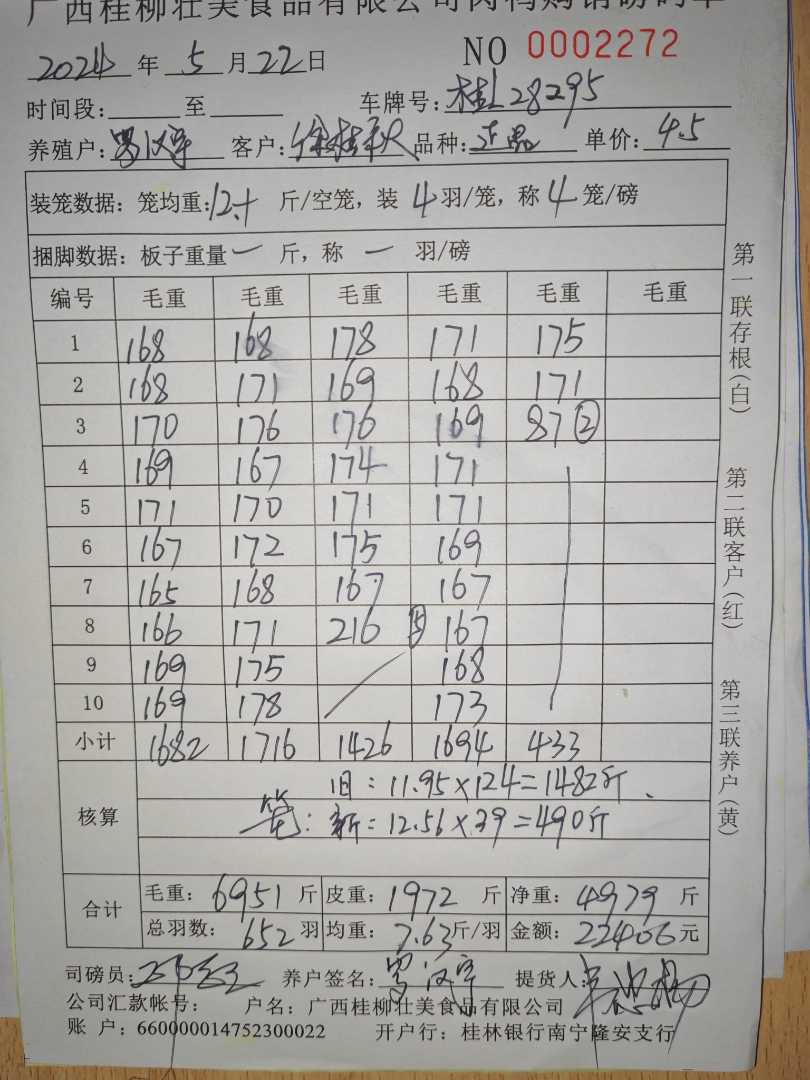 广西桂柳壮美食品有限公司肉鸭购销磅码单
2024 年 5 月 22 日 NO 0002272
时间段: 至 车牌号: 桂L28295
养殖户: 罗汉宇 客户: 徐桂秋 品种: 正品 单价: 4.5
装笼数据: 笼均重: 斤/空笼, 装 4 羽/笼, 称 4 笼/磅
捆脚数据: 板子重量 一 斤, 称 一 羽/磅
编号 毛重 毛重 毛重 毛重 毛重 毛重
1 168 168 178 171 175
2 168 171 169 168 171
3 170 176 176 169 87 ②
4 169 167 174 171
5 171 170 171 171
6 167 172 175 169
7 165 168 167 167
8 166 171 216 5 167
9 169 175 168
10 169 178 173
小计 1682 1716 1426 1694 433
核算 旧: 11.95×124=1482斤.
笼: 新=12.56×39=490斤
合计 毛重: 6951 斤 皮重: 1972 斤 净重: 4979 斤
总羽数: 652 羽 均重: 7.63 斤/羽 金额: 22406 元
司磅员: 养户签名: 罗汉宇 提货人:
公司汇款帐号: 户名: 广西桂柳壮美食品有限公司
账 户: 660000014752300022 开户行: 桂林银行南宁隆安支行
第一联存根(白) 第二联客户(红) 第三联养户(黄)